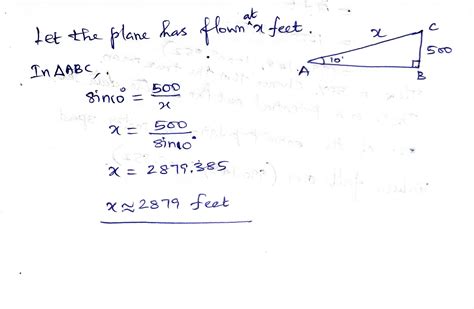 Let the plane has flown at x feet.
In ΔABC,
sin10° = 500/x
x = 500/sin10°
x = 2879.385
x ≈ 2879 feet
x
C
500
10°
A
B